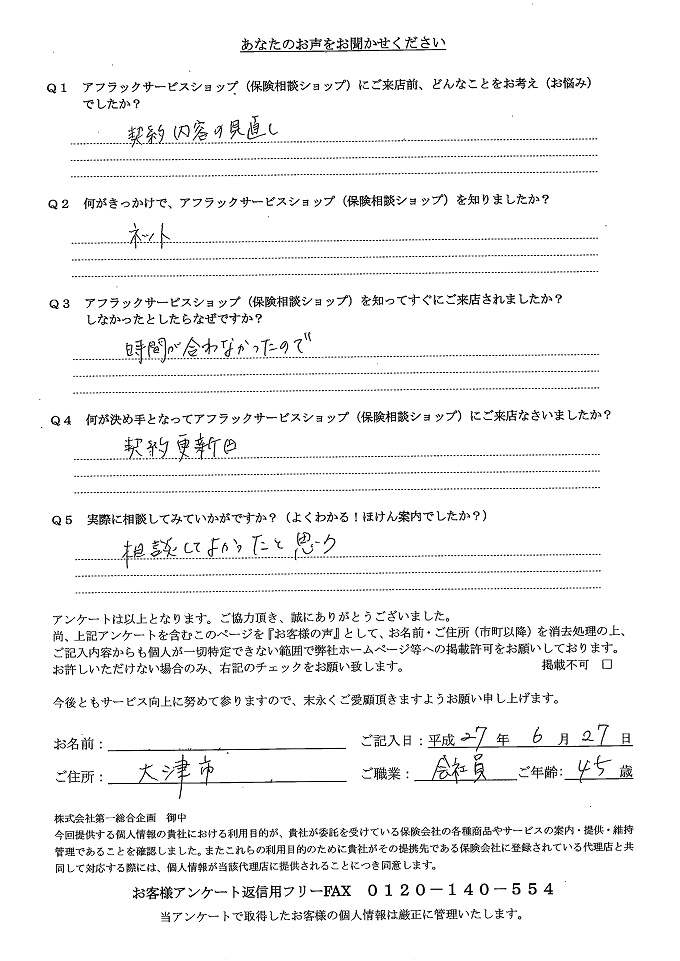 あなたのお声をお聞かせください
Q1 アフラックサービスショップ（保険相談ショップ）にご来店前、どんなことをお考え（お悩み）
でしたか？
契約内容の見直し
Q2 何がきっかけで、アフラックサービスショップ（保険相談ショップ）を知りましたか？
ネット
Q3 アフラックサービスショップ（保険相談ショップ）を知ってすぐにご来店されましたか？
しなかったとしたらなぜですか？
時間が合わなかったので
Q4 何が決め手となってアフラックサービスショップ（保険相談ショップ）にご来店なさいましたか？
契約更新日
Q5 実際に相談してみていかがですか？（よくわかる！ほけん案内でしたか？）
相談してよかったと思う
アンケートは以上となります。ご協力頂き、誠にありがとうございました。
尚、上記アンケートを含むこのページを『お客様の声』として、お名前・ご住所（市町以降）を消去処理の上、
ご記入内容からも個人が一切特定できない範囲で弊社ホームページ等への掲載許可をお願いしております。
お許しいただけない場合のみ、右記のチェックをお願い致します。 掲載不可 □
今後ともサービス向上に努めて参りますので、末永くご愛顧頂きますようお願い申し上げます。
お名前： ご記入日：平成 27 年 6 月 27 日
ご住所： 大津市 ご職業： 会社員 ご年齢： 45 歳
株式会社第一総合企画 御中
今回提供する個人情報の貴社における利用目的が、貴社が委託を受けている保険会社の各種商品やサービスの案内・提供・維持
管理であることを確認しました。またこれらの利用目的のために貴社がその提携先である保険会社に登録されている代理店と共
同して対応する際には、個人情報が当該代理店に提供されることにつき同意します。
お客様アンケート返信用フリーFAX 0120－140－554
当アンケートで取得したお客様の個人情報は厳正に管理いたします。